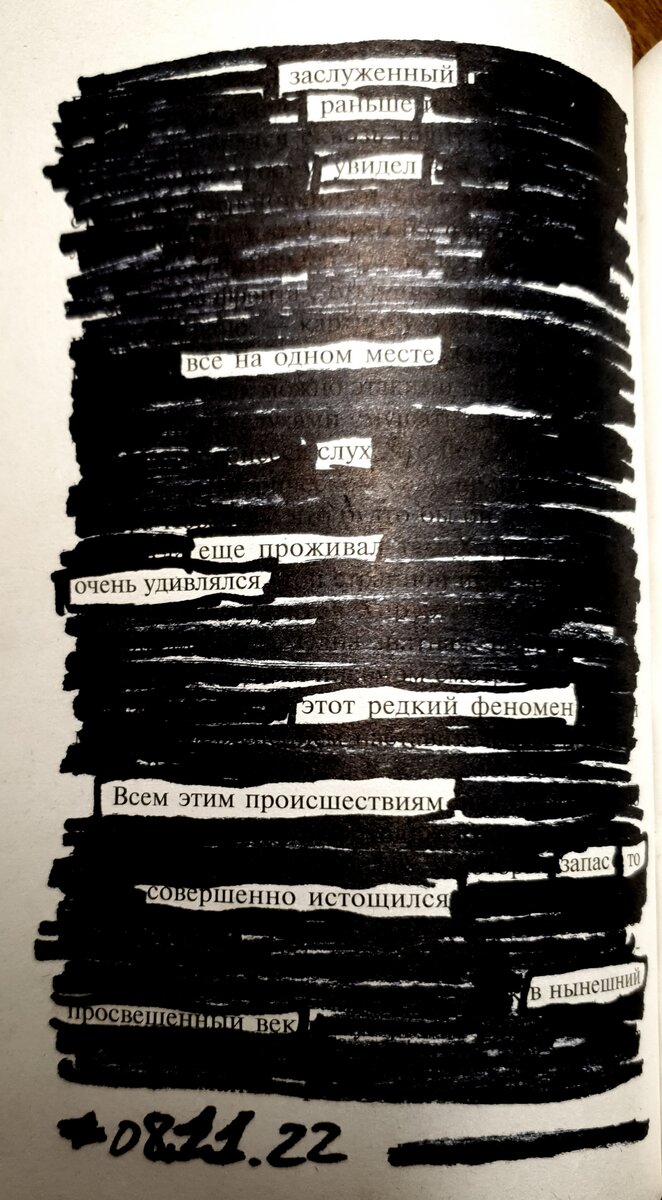 заслуженный
раньше
увидел
все на одном месте
слух
еще проживал
очень удивлялся
этот редкий феномен
Всем этим происшествиям
запас то
совершенно истощился
в нынешний
просвещенный век
08.11.22